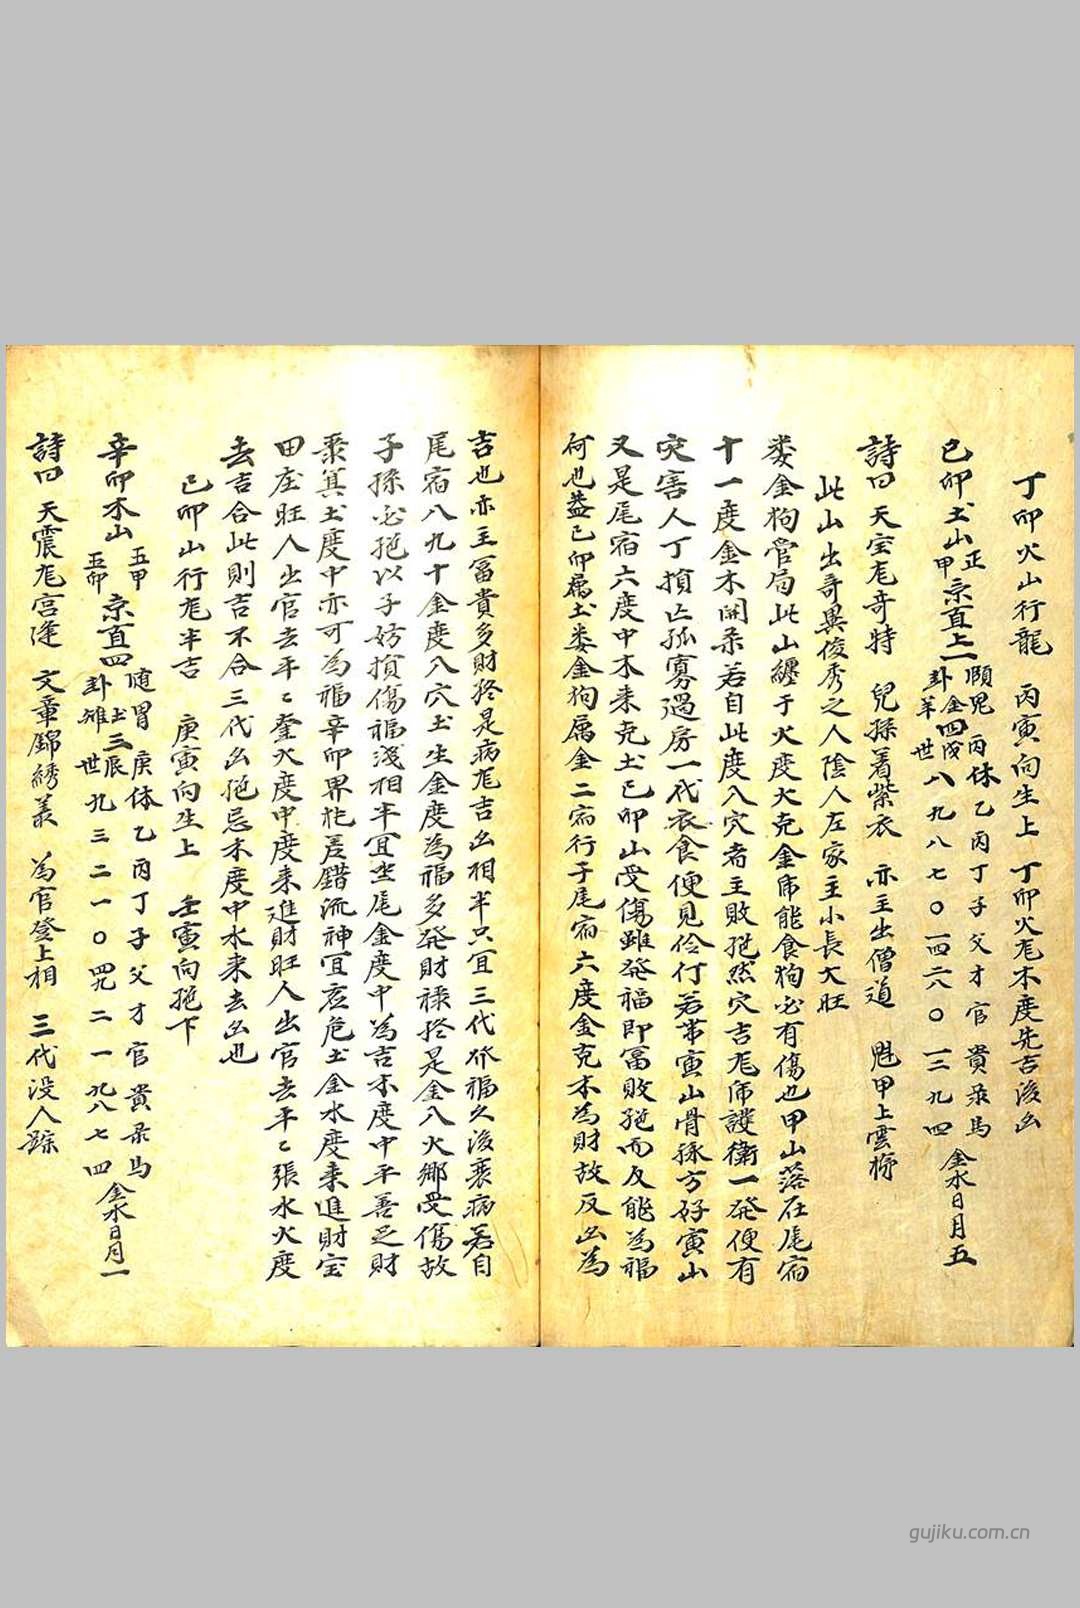 丁卯火山行龍　丙寅向生上　丁卯火尨木度先吉後凶
己卯土山　正甲　京直上一　頤卦　鬼金羊　四戌世　丙休　乙丙丁子父才官貴彔馬　八九八七〇一四二六〇一三九四　金水日月五
詩曰　天宝尨奇特　兒孫着紫衣　亦主出僧道　魁甲上雲梯
此山出奇異俊秀之人陰人左家主小長大旺
娄金狗管局此山纏于火度火克金乕能食狗必有傷也甲山落在尾宿
十一度金木鬪柔若自此度入穴者主敗絶然穴吉尨乕護衛一発便有
灾害人丁損亡孤寡過房一代衣食便見伶仃若帯寅山骨脉方好寅山
又是尾宿六度中木来克土己卯山受傷雖発福即冨敗絶而反能為福
何也葢己卯屬土娄金狗屬金二宿行于尾宿六度金克木為財故反凶為
吉也亦主冨貴多財終是病尨吉凶相半只宜三代發福久後衰病若自
尾宿八九十金度入穴土生金度為福多発財禄終是金入火鄉受傷故
子孫必絶以子妨損傷福淺相半宜坐尾金度中為吉木度中平善足財
聚箕土度中亦可為福辛卯界牝差錯流神宜危土金水度来進財宝
田庄旺人出官去平〻奎火度中度来進財旺人出官去平〻張水火度
去吉合此則吉不合三代凶絶忌木度中水来去凶也
己卯山行尨半吉　庚寅向生上　壬寅向絶下
辛卯木山　五甲五卯　京直四　随卦　胃土雉　三辰世　庚休　乙丙丁子父才官貴彔馬　九三二一〇四九二一九八七四　金水日月一
詩曰　天震尨宫逢　文章錦綉美　為官登上相　三代没人蹤
gujiku.com.cn